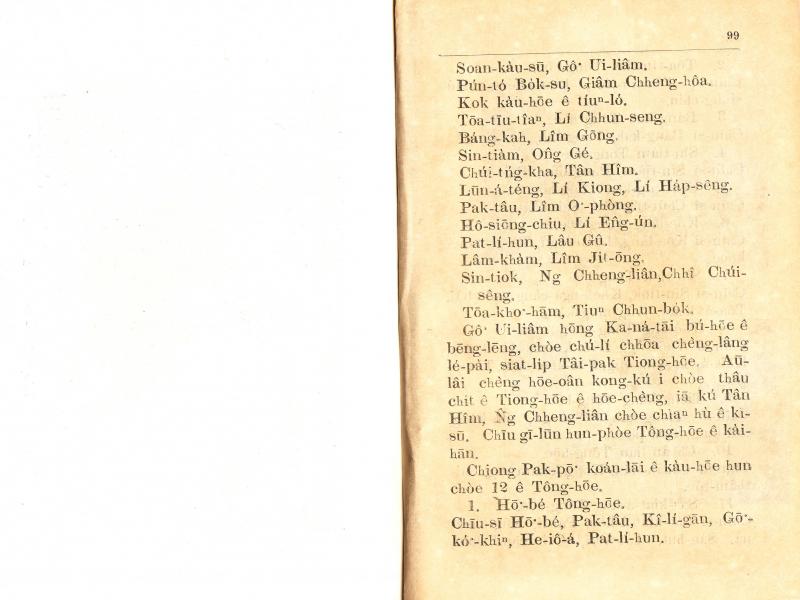 99
Soan-kàu-sū, Gô͘ Ui-liâm.
Pún-tó Bo̍k-su, Giâm Chheng-hôa.
Kok kàu-hōe ê tiúⁿ-ló.
Tōa-tīu-tîaⁿ, Lí Chhun-seng.
Báng-kah, Lîm Gōng.
Sin-tiàm, Ông Gé.
Chúi-tńg-kha, Tân Hîm.
Lūn-á-téng, Lí Kiong, Lí Ha̍p-sêng.
Pak-tâu, Lîm O͘-phòng.
Hô-siōng-chiu, Lí Eńg-ún.
Pat-lí-hun, Lâu Gû.
Lâm-khàm, Lîm Ji̍t-ōng.
Sin-tiok, Ng Chheng-liân,Chhî Chúi-
sêng.
Tōa-kho͘-hām, Tiuⁿ Chhun-bo̍k.
Gô͘ Ui-liâm hōng Ka-ná-tāi bú-hōe ê
bēng-lēng, chòe chú-lí chhōa chèng-lâng
lé-pài, siat-li̍p Tâi-pak Tiong-hōe. Aū-
lâi chèng hōe-oân kong-kú i chòe thâu
chi̍t ê Tiong-hōe ê hōe-chèng, iā kú Tân
Hîm, N̂g Chheng-liân chòe chiaⁿ hù ê kì-
sū. Chīu gī-lūn hun-phòe Tông-hōe ê kài-
hān.
Chiong Pak-pō͘ koán-lāi ê kàu-hōe hun
chòe 12 ê Tông-hōe.
1. Hō͘-bé Tông-hōe.
Chīu-sī Hō͘-bé, Pak-tâu, Kî-lí-gān, Gō͘-
kó͘-khiⁿ, He-iô-á, Pat-lí-hun.